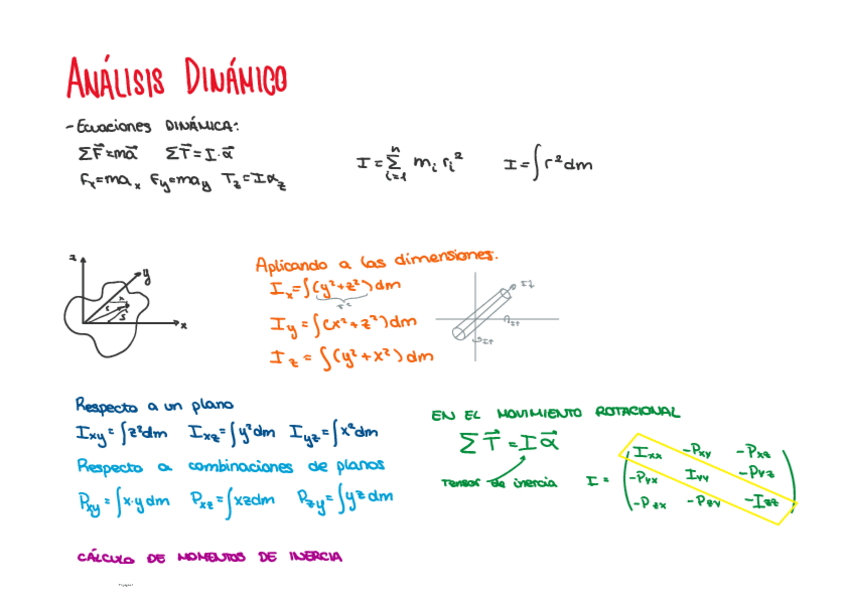 ANÁLISIS DINÁMICO
- Ecuaciones DINÁMICA:
ΣF⃗=ma⃗ ΣT⃗=I·α⃗
Fx=max Fy=may Tz=Iαz
I=Σ(i=1..n) mi ri² I=∫r²dm
z y x
r
s
Aplicando a las dimensiones:
Ix=∫(y²+z²)dm
r²
Iy=∫(x²+z²)dm
Iz=∫(y²+x²)dm
Respecto a un plano
Ixy=∫z²dm Ixz=∫y²dm Iyz=∫x²dm
Respecto a combinaciones de planos
Pxy=∫x·y dm Pxz=∫xzdm Pzy=∫yz dm
EN EL MOVIMIENTO ROTACIONAL
ΣT⃗=Iα⃗
Tensor de inercia
I=
Ixx -Pxy -Pxz
-Pyx Iyy -Pyz
-Pzx -Pzy -Izz
CÁLCULO DE MOMENTOS DE INERCIA